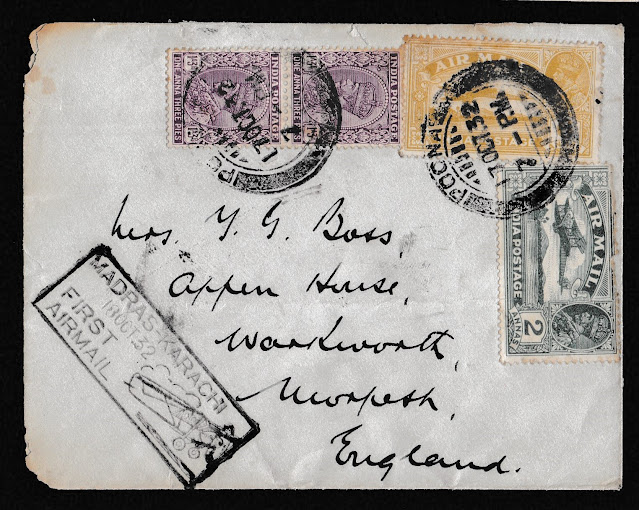 INDIA POSTAGE
ONE ANNA THREE PIES
INDIA POSTAGE
ONE ANNA THREE PIES
AIR MAIL
POONA
17 OCT. 32
2 - PM
AIR MAIL
INDIA POSTAGE
2
ANNAS
Mrs. Y. G. Boss,
Appen House,
Warkworth,
Morpeth,
England.
MADRAS-KARACHI
18 OCT. 32
FIRST
AIRMAIL